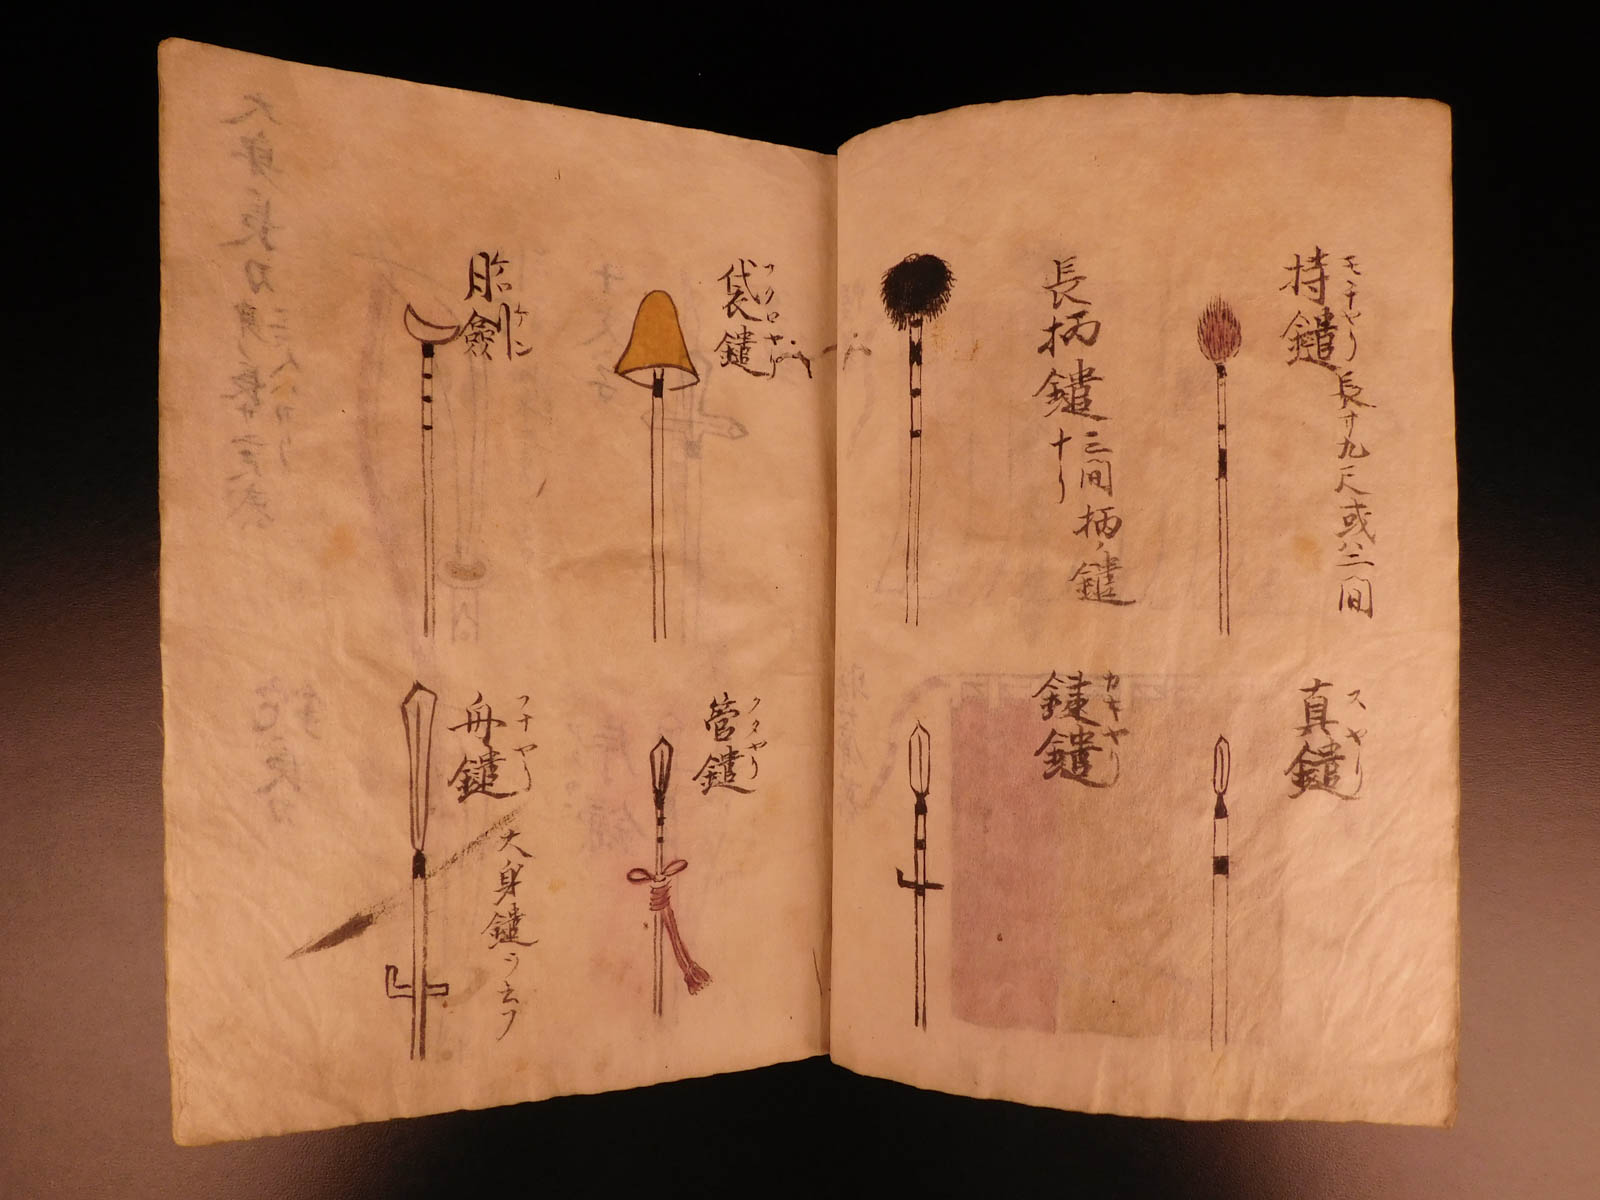 持鑓
モチヤリ
長サ九尺或ハ二間
長柄鑓
三間柄ノ鑓
ナリ
真鑓
スヤリ
鍵鑓
カキヤリ
袋鑓
フクロヤリ
管鑓
クタヤリ
舟鑓
フナヤリ
大身鑓ヲ云フ